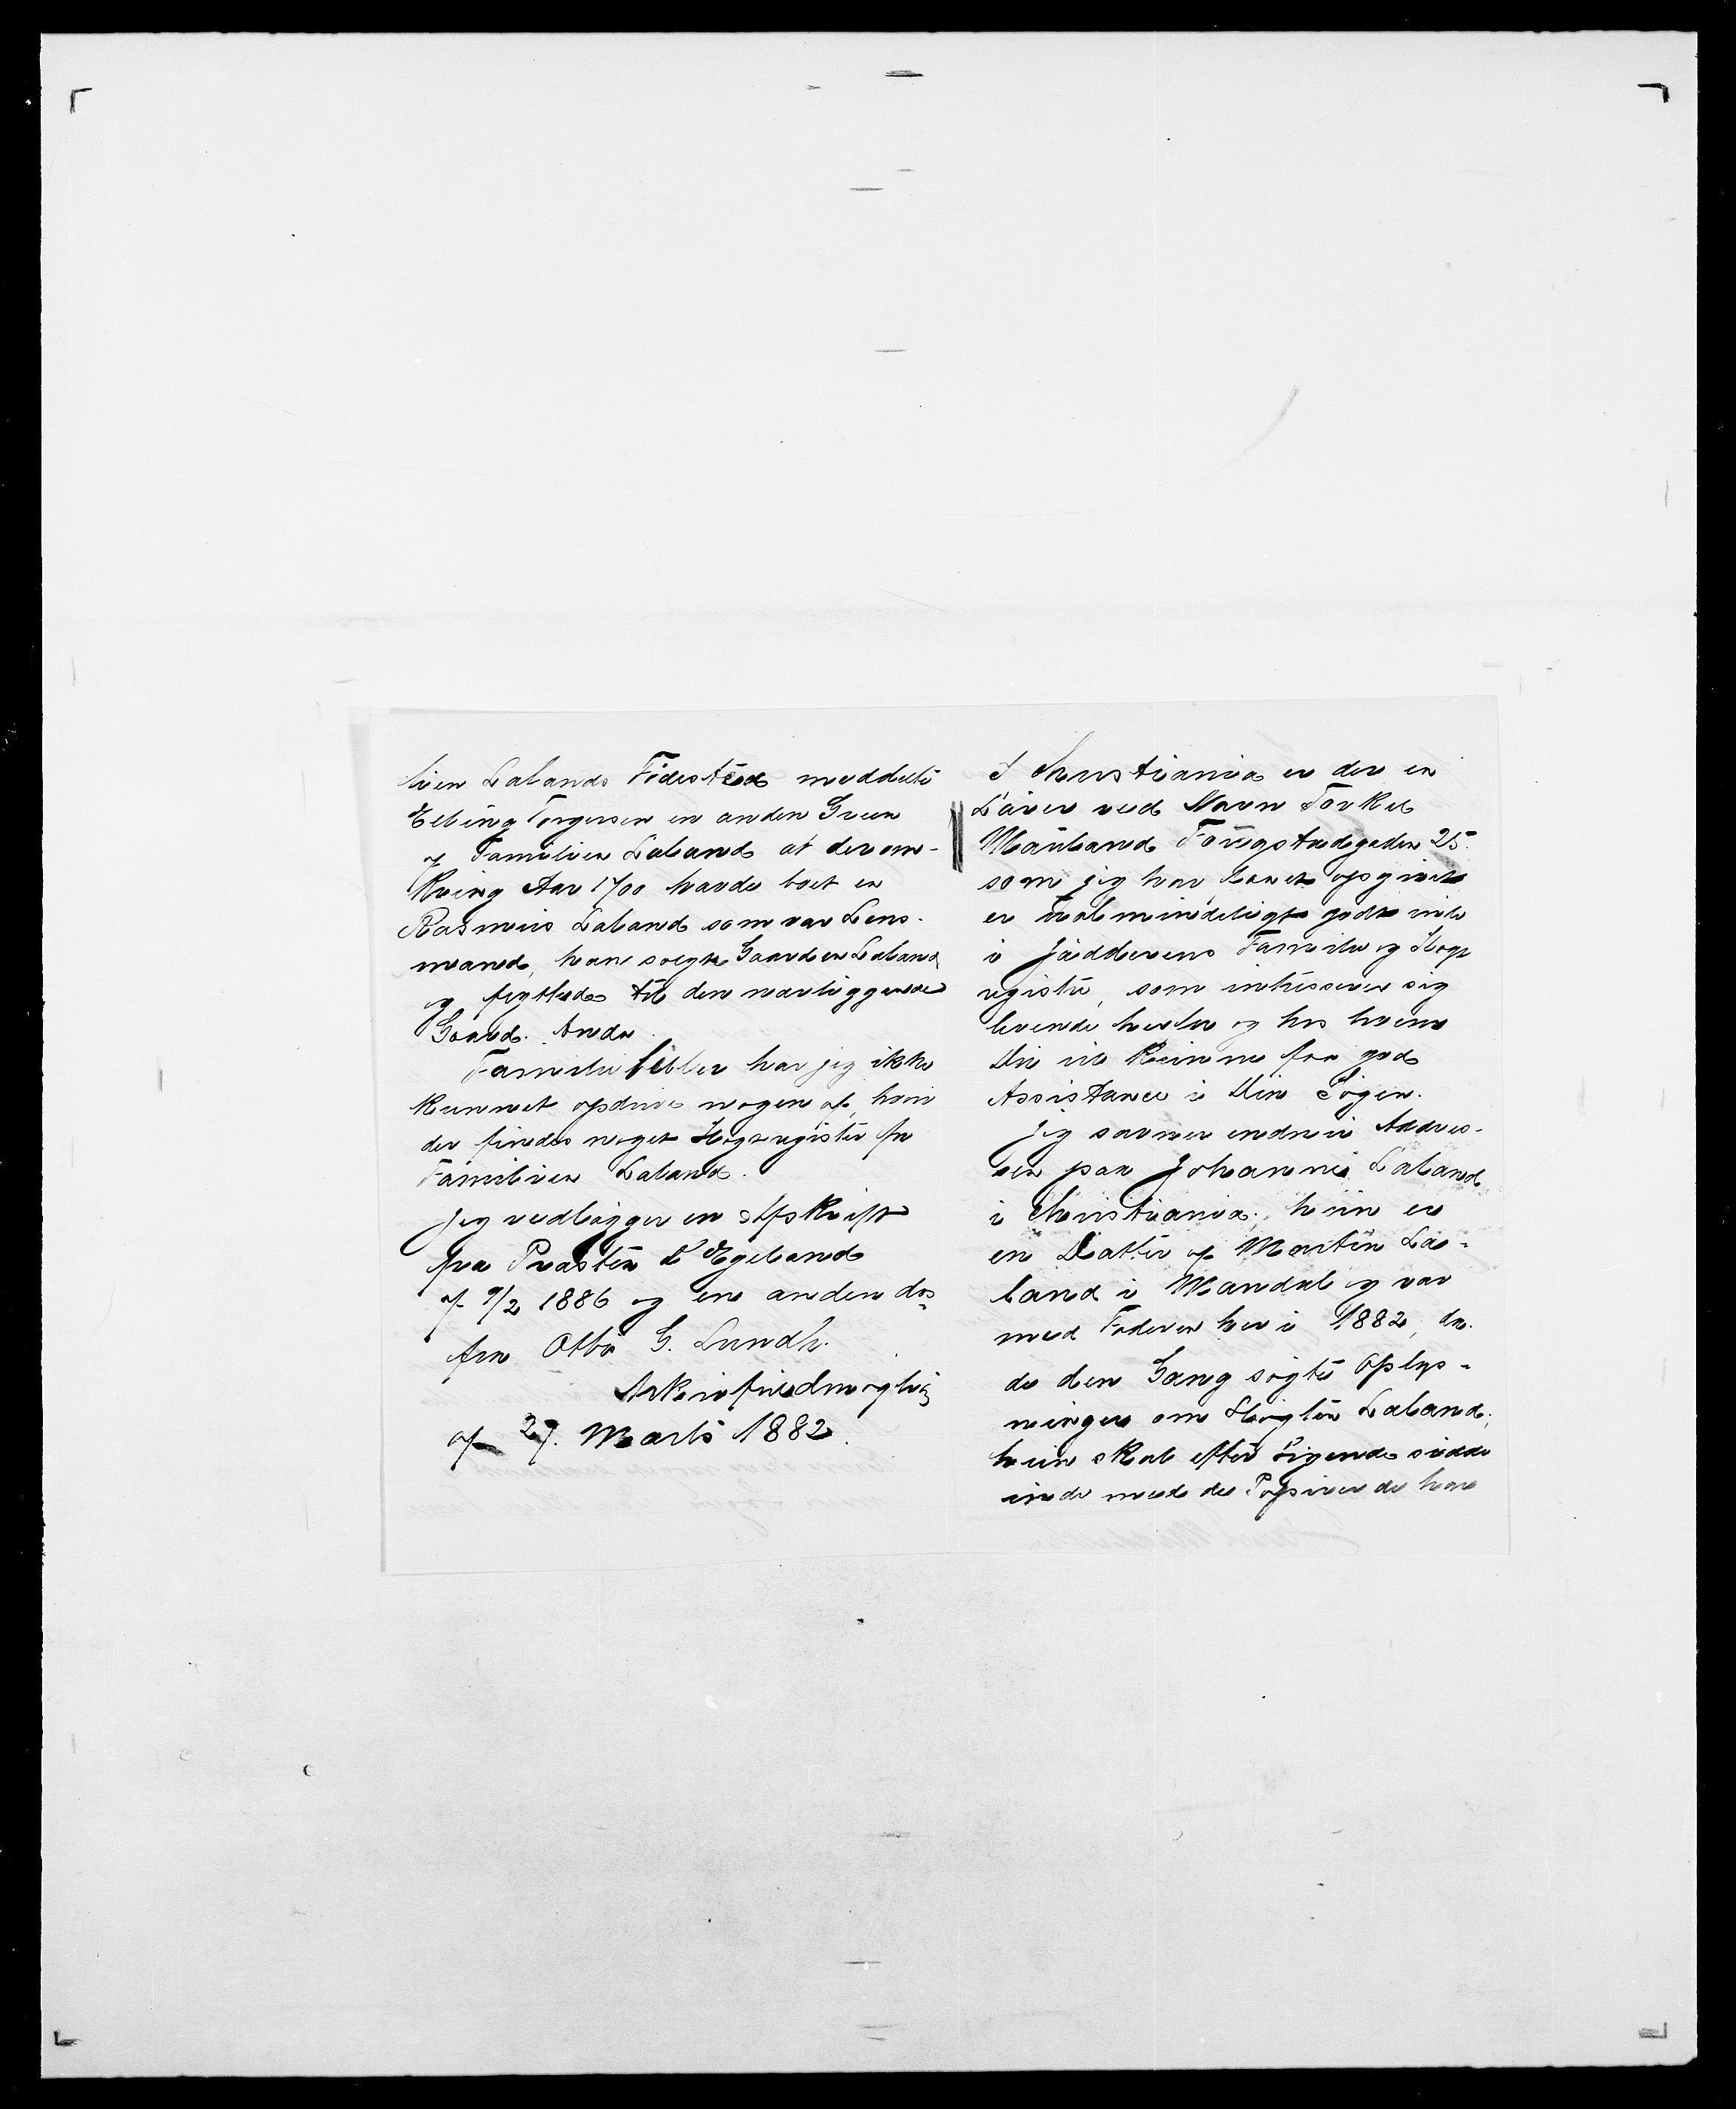 lien Lalands Fødested meddelte
Elling Torgersen en anden Green
af Familien Laland at der om-
kring Aar 1700 havde boet en
Rasmus Laland som var Lens-
mand, han solgte Gaarden Laland
og flyttede til den nærliggende
Gaard Anda.
Familiebibler har jeg ikke
kunnet opdrive nogen af, hvori
der findes noget Slægtregister for
Familien Laland.
Jeg vedlægger en Afskrift
fra Præsten L Egeland
af 9/2 1886 og en anden do
fra Otto G. Lundh.
Arkivfuldmægtig
af 27. Marts 1882.
I Christiania er der en
Lærer ved Navn Torkel
Mauland Tøugstadgaden 25.
som jeg har kaldet opgivet
er ualmindeligt godt inde
i Jædderens Familie og Slægt
register, som intresserer sig
levende herfor og hos hvem
Du vil kunne faa god
Assistance i Din Søgen.
Jeg savner endnu Addres-
sen paa Johanne Laland
i Christiania; hun er
en Datter af Morten La-
land i Mandal og var
med Faderen her i 1882, da
de den Gang søgte Oplys-
ninger om Slægten Laland;
hun skal efter Sigende sidde
inde med de Papirer de har